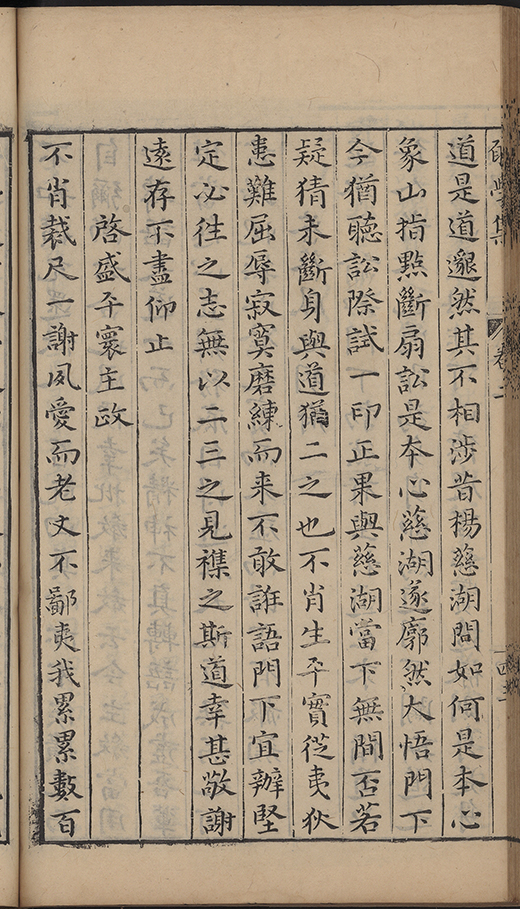 學集 卷二
道是道邈然其不相涉昔楊慈湖問如何是本心
象山指點斷扇訟是本心慈湖遂廓然大悟門下
今猶聽訟際試一印正果與慈湖當下無間否若
疑猜未斷身與道猶二之也不肖生平實從夷狄
患難屈辱寂寞磨練而來不敢誑語門下宜辦堅
定必往之志無以二三之見襍之斯道幸甚敬謝
遠存不盡仰止
啓盛平寰主政
不肖裁尺一謝夙愛而老丈不鄙夷我累累數百